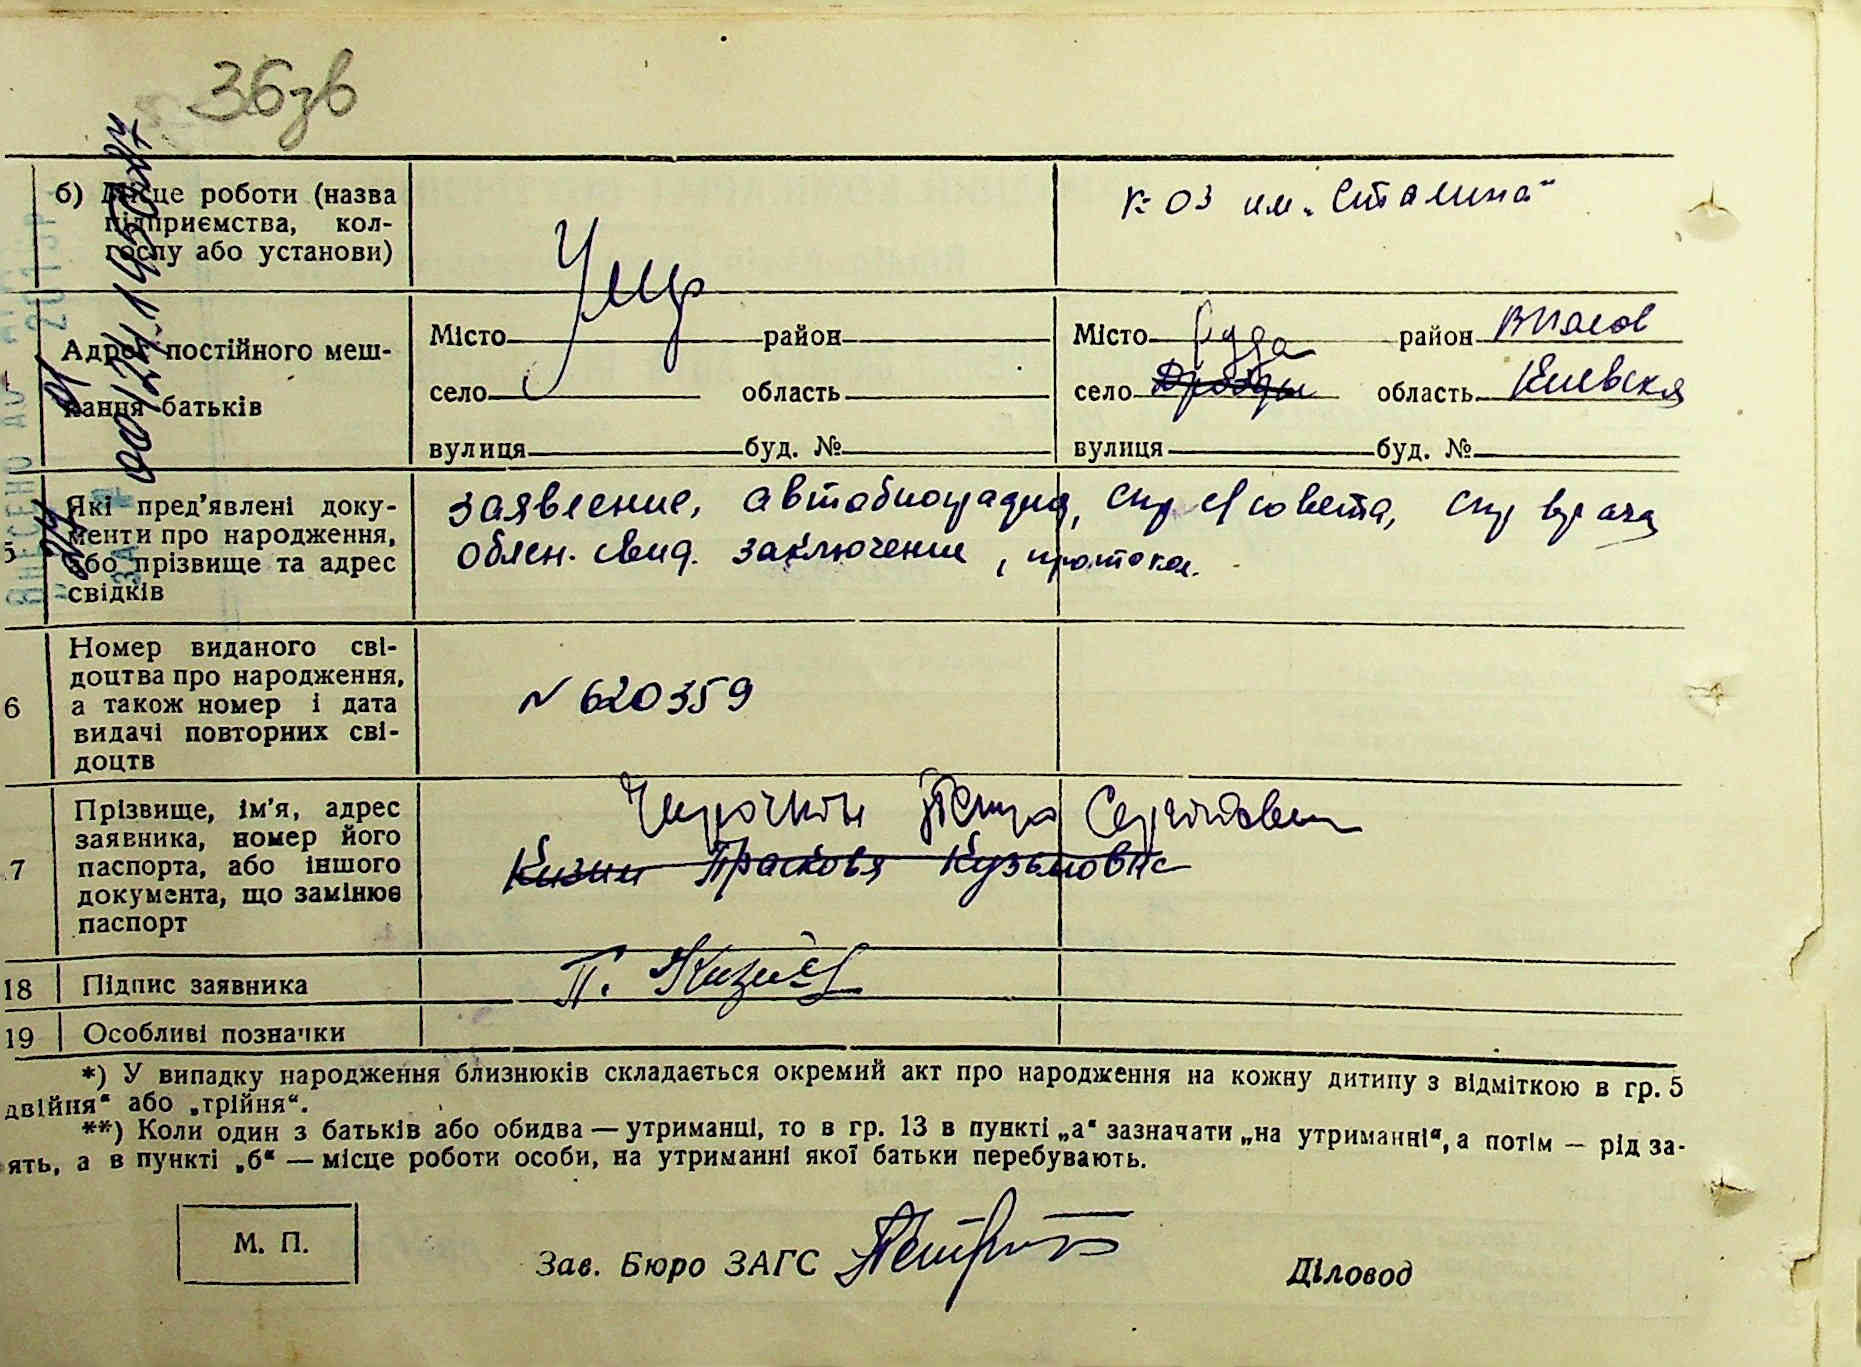 36зв
б) Місце роботи (назва
підприємства, кол-
госпу або установи)
К-оз им. "Сталина"
Умер
Адреса постійного меш-
кання батьків
Місто район
село область
вулиця буд. №
Місто Руда район
село Дрозды область Киевская
вулиця буд. №
5 Які пред'явлені доку-
менти про народження,
або прізвище та адрес
свідків
заявление, автобиография, спр с/совета, спр врача
свид. заключение, протокол.
6 Номер виданого сві-
доцтва про народження,
а також номер і дата
видачі повторних сві-
доцтв
N 620359
7 Прізвище, ім'я, адрес
заявника, номер його
паспорта, або іншого
документа, що замінює
паспорт
Кизим Прасковя Кузьмовна
18 Підпис заявника
П. Кизим
19 Особливі позначки
*) У випадку народження близнюків складається окремий акт про народження на кожну дитину з відміткою в гр. 5
двійня" або „трійня".
**) Коли один з батьків або обидва — утриманці, то в гр. 13 в пункті „а" зазначати „на утриманні", а потім — рід за-
ять, а в пункті „б" — місце роботи особи, на утриманні якої батьки перебувають.
М. П.
Зав. Бюро ЗАГС
Діловод